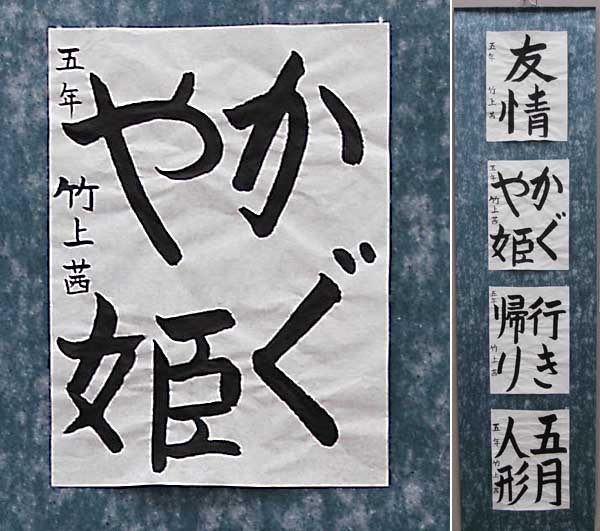 かぐ
や姫
五年 竹上茜
友情
五年 竹上茜
かぐ
や姫
五年 竹上茜
行き
帰り
五年 竹上茜
五月
人形
五年 竹上茜